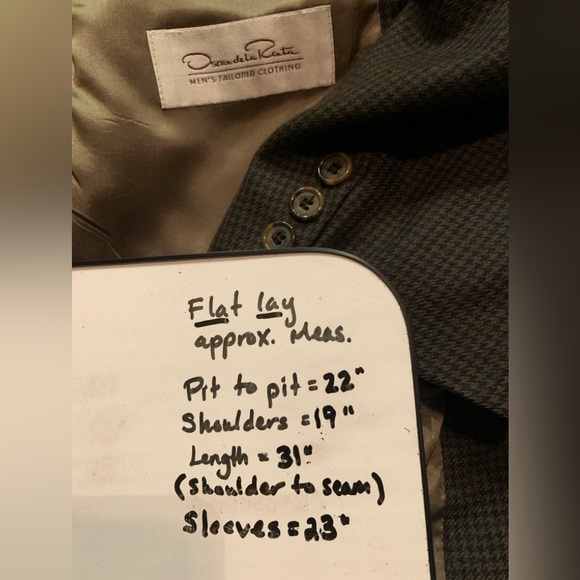 Oscar de la Renta
MEN'S TAILORED CLOTHING
Flat lay
approx. Meas.
Pit to pit = 22"
Shoulders = 19"
Length = 31"
(Shoulder to seam)
Sleeves = 23"